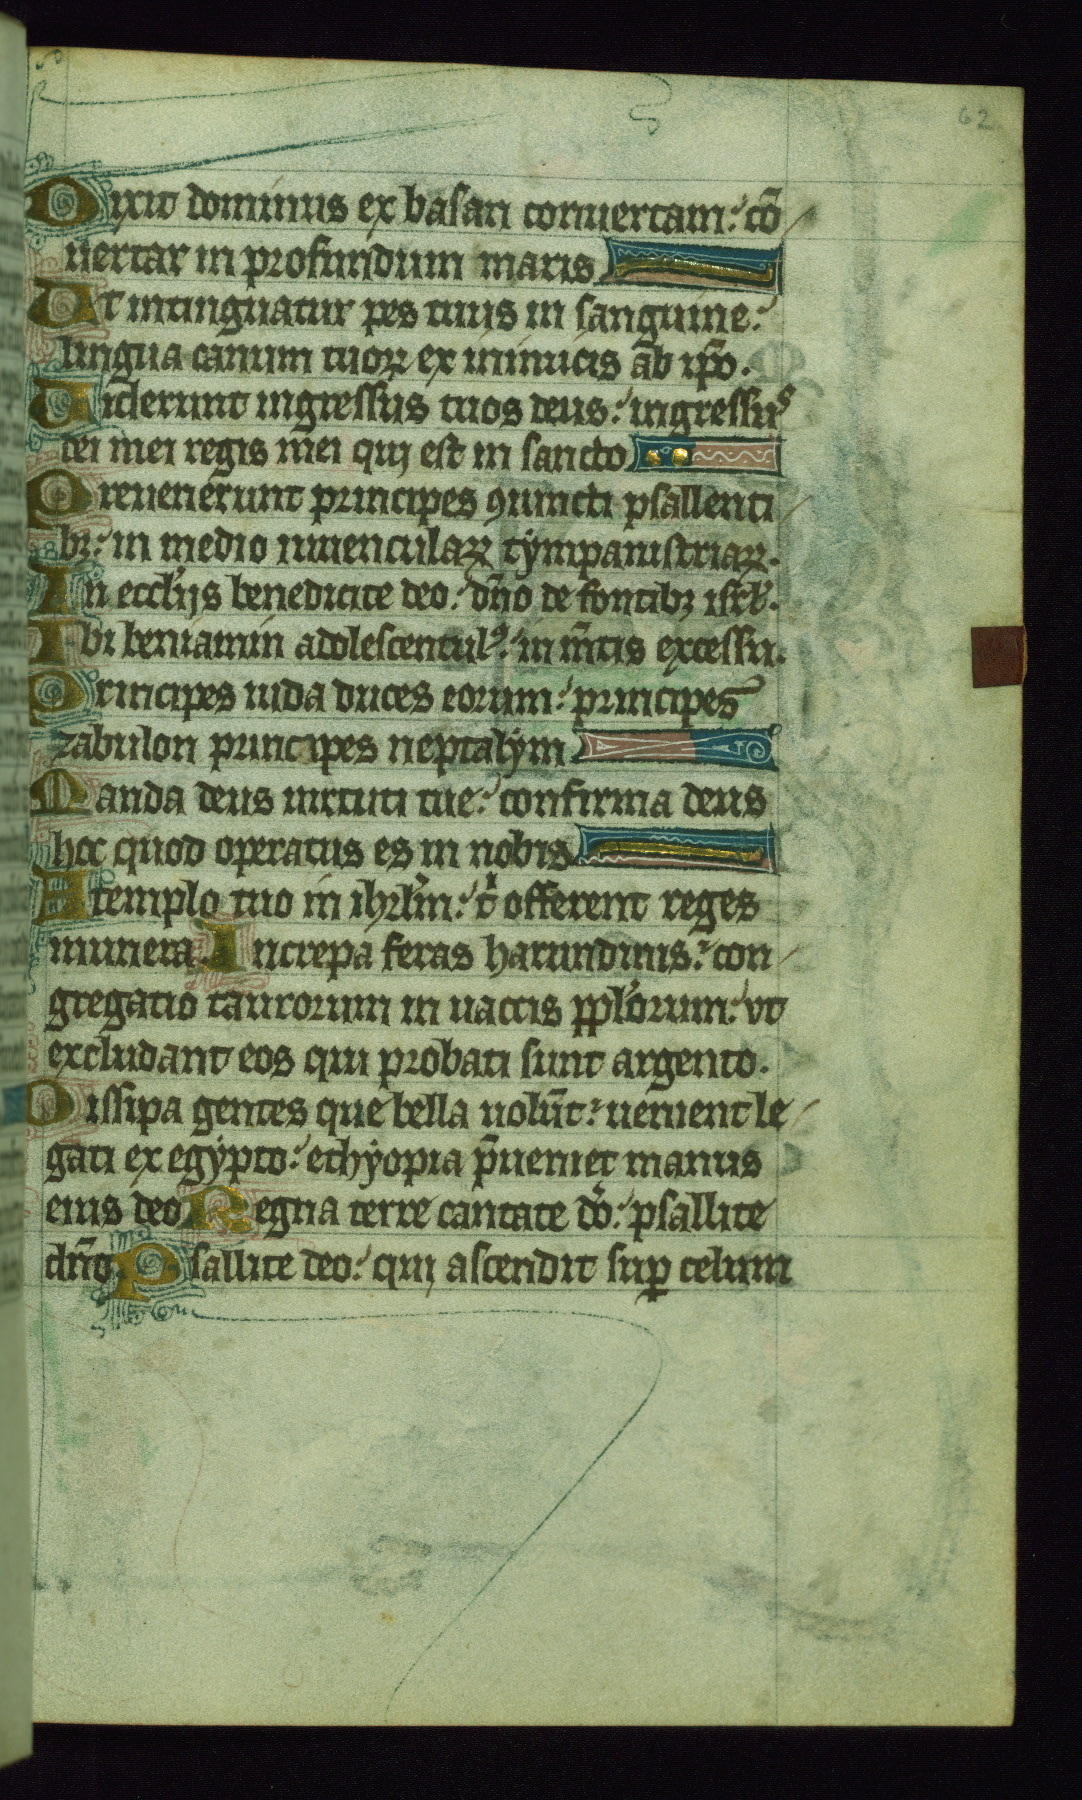 62
Dixit dominus ex basan conuertam: cō
uertar in profundum maris
Ut intinguatur pes tuus in sanguine:
lingua canum tuoꝝ ex inimicis ab ip̄o.
Uiderunt ingressus tuos deus: ingressus
dei mei regis mei qui est in sancto
Preuenerunt principes ꝯiuncti psallenti
bꝫ: in medio iuuenculaꝝ tympanistriaꝝ.
In eccl'ijs benedicite deo: dn̄o de fontibꝫ isrl'.
Ibi beniamin adolescentulꝰ: in m̄tis excessu.
Principes iuda duces eorum: principes
zabulon principes neptalym
Manda deus uirtuti tue: confirma deus
hoc quod operatus es in nobis
A templo tuo in ihrl'm: t' offerent reges
munera. Increpa feras harundinis: con
gregatio taurorum in uaccis ppl'orum: vt
excludant eos qui probati sunt argento.
Dissipa gentes que bella uolūt: uenient le
gati ex egypto: ethyopia p̄ueniet manus
eius deo Regna terre cantate dō: psallite
dn̄o. Psallite deo: qui ascendit suꝑ celum